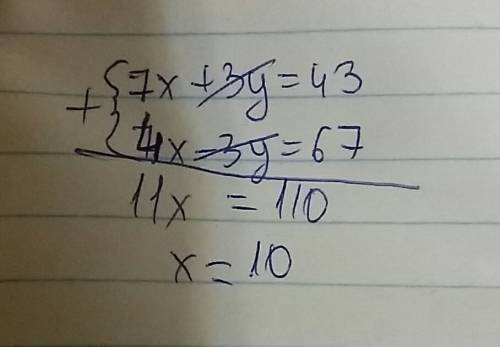 + { 7x + 3y = 43
4x - 3y = 67
11x = 110
x = 10